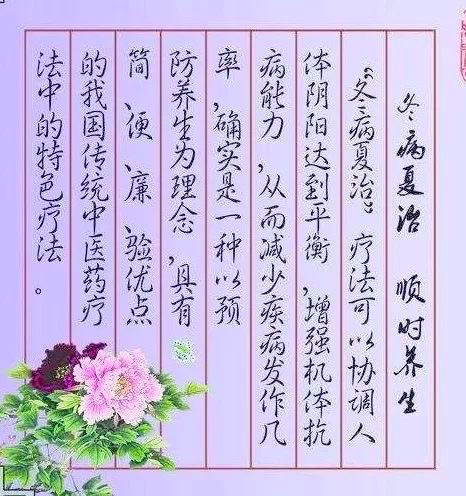 冬病夏治 顺时养生
“冬病夏治”疗法可以协调人
体阴阳达到平衡,增强机体抗
病能力,从而减少疾病发作几
率,确实是一种以预
防养生为理念,具有
简、便、廉、验优点
的我国传统中医药疗
法中的特色疗法。